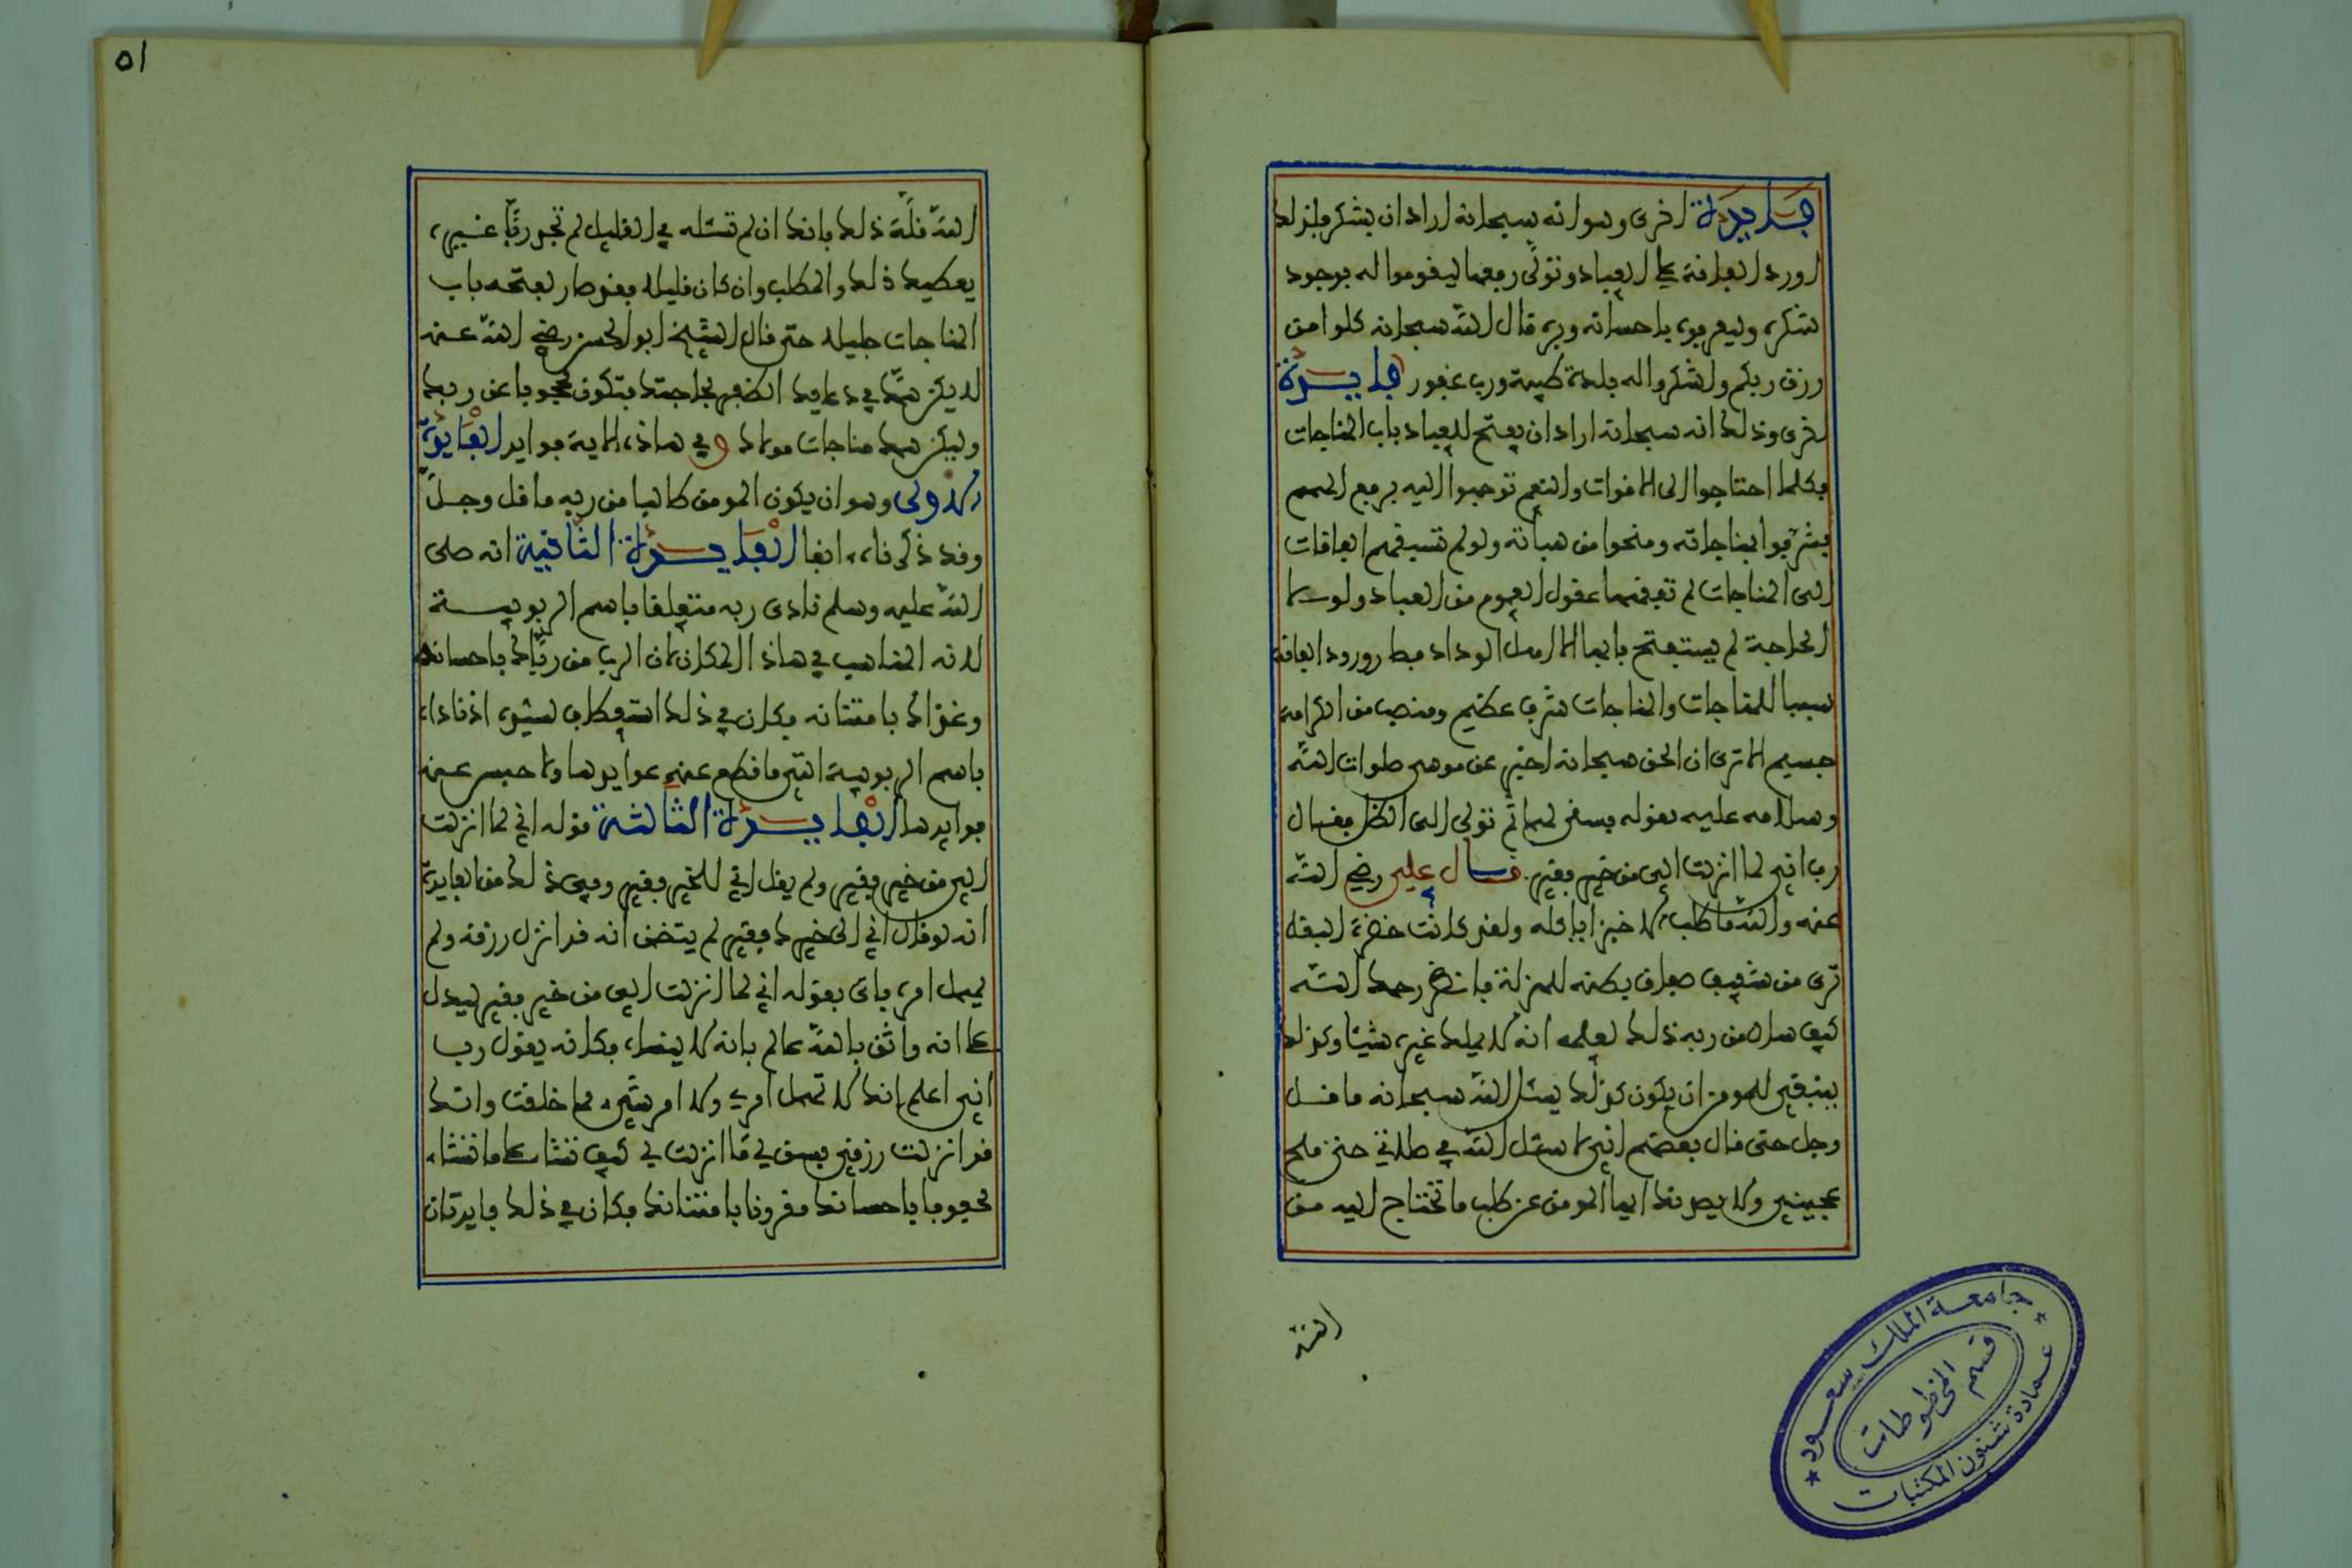 فايدة اخرى وهو انه سبحانه اراد ان يشكر فلذلك
اورد الفاقة على العباد وتولى رفعها ليقوموا له بوجود
شكره وليعرفوه باحسانه وبره قال الله سبحانه كلوا من
رزق ربكم واشكروا له بلدة طيبة ورب غفور فايدة
اخرى وذلك انه سبحانه اراد ان يفتح للعباد باب المناجات
فكلما احتاجوا الى الاقوات والنعم توجهوا اليه برفع الهمم
فشرفوا بمناجاته ومنحوا من هباته ولو لم تسقهم الفاقات
الى المناجات لم تفقهها عقول العموم من العباد ولولا
الحاجة لم يستفتح بابها الا اهل الوداد فصار ورود الفاقة
سببا للمناجات والمناجات شرف عظيم ومنصب من الكرامة
جسيم الا ترى ان الحق سبحانه اخبر عن موسى صلوات الله
وسلامه عليه بقوله فسقى لهما ثم تولى الى الظل فقال
رب اني لما انزلت الي من خير فقير قال علي رضي الله
عنه والله ما طلب الا خبزا ياكله ولقد كانت خضرة البقل
ترى من شفيف صفاق بطنه لهزاله فانظر رحمك الله
كيف سال من ربه ذلك لعلمه انه لا يملك غيره شيئا وكذلك
ينبغي للمومن ان يكون كذلك يسئل الله سبحانه ما قل
وجل حتى قال بعضهم اني لاسئل الله في صلاتي حتى ملح
عجيني ولا يصدنك ايها المومن عن طلب ما تحتاج اليه من
الله
الله قلة ذلك فانك ان لم تسئله في القليل لم تجد ربا غيره
يعطيك ذلك والمطلب وان كان قليلا فقد صار لفتحه باب
المناجات جليلا حتى قال الشيخ ابو الحسن رضي الله عنه
لا يكن همك في دعايك الظفر بحاجتك فتكون محجوبا عن ربك
وليكن همك مناجات مولاك وفي هاذه الاية فوايد الفايدة
الاولى وهو ان يكون المومن طالبا من ربه ما قل وجل
وقد ذكرناه انفا الفايدة الثانية انه صلى
الله عليه وسلم نادى ربه متعلقا باسم الربوبية
لانه المناسب في هاذا المكان لان الرب من رباك باحسانه
وغذاك بامتنانه فكان في ذلك استعطاف لسيده اذ ناداه
باسم الربوبية التي ما قطع عنه عوايدها ولا حبس عنه
فوايدها الفايدة الثالثة قوله اني لما انزلت
الي من خير فقير ولم يقل اني للخير فقير وفي ذلك من الفايدة
انه لو قال اني الى خيرك فقير لم يتضمن انه قد انزل رزقه ولم
يهمل امره فاتى بقوله اني لما انزلت الي من خير فقير ليدل
على انه واثق بالله عالم بانه لا ينساه فكانه يقول رب
اني اعلم انك لا تهمل امري ولا امر شيء مما خلقت وانك
قد انزلت رزقي فسق لي ما انزلت لي كيف تشا على ما تشاء
محفوفا باحسانك مقرونا بامتنانك فكان في ذلك فايدتان
٥١
جامعة الملك سعود
قسم المخطوطات
عمادة شئون المكتبات